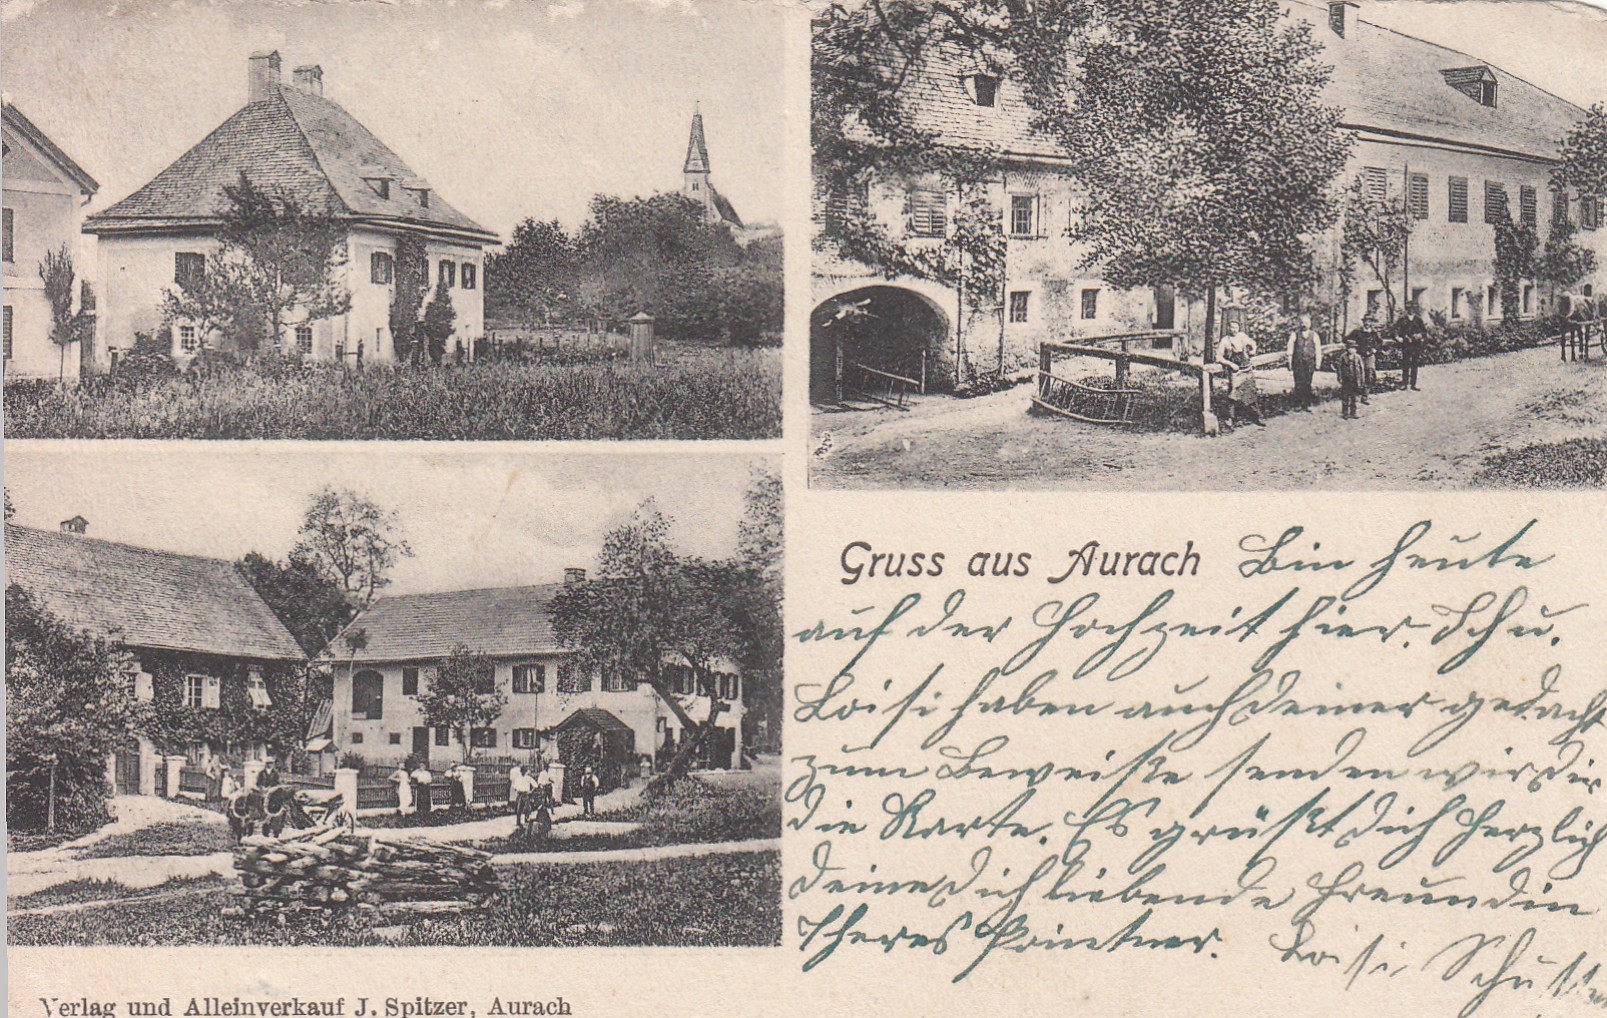 Gruss aus Aurach Bin heute
auf der Hochzeit hier. Ich u.
Loisi haben auch deiner gedacht
zum Beweiße senden wir dir
die Karte. Es grüßt dich herzlich
deine dich liebende Freundin
Theres Pointner. Loisi
Verlag und Alleinverkauf J. Spitzer, Aurach